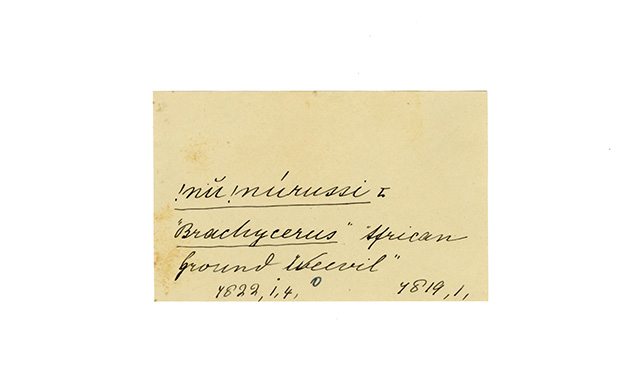 !nŭ !núrussi I
"Brachycerus" African
Ground Weevil"
4822, 1, 4, 0 4819, 1,